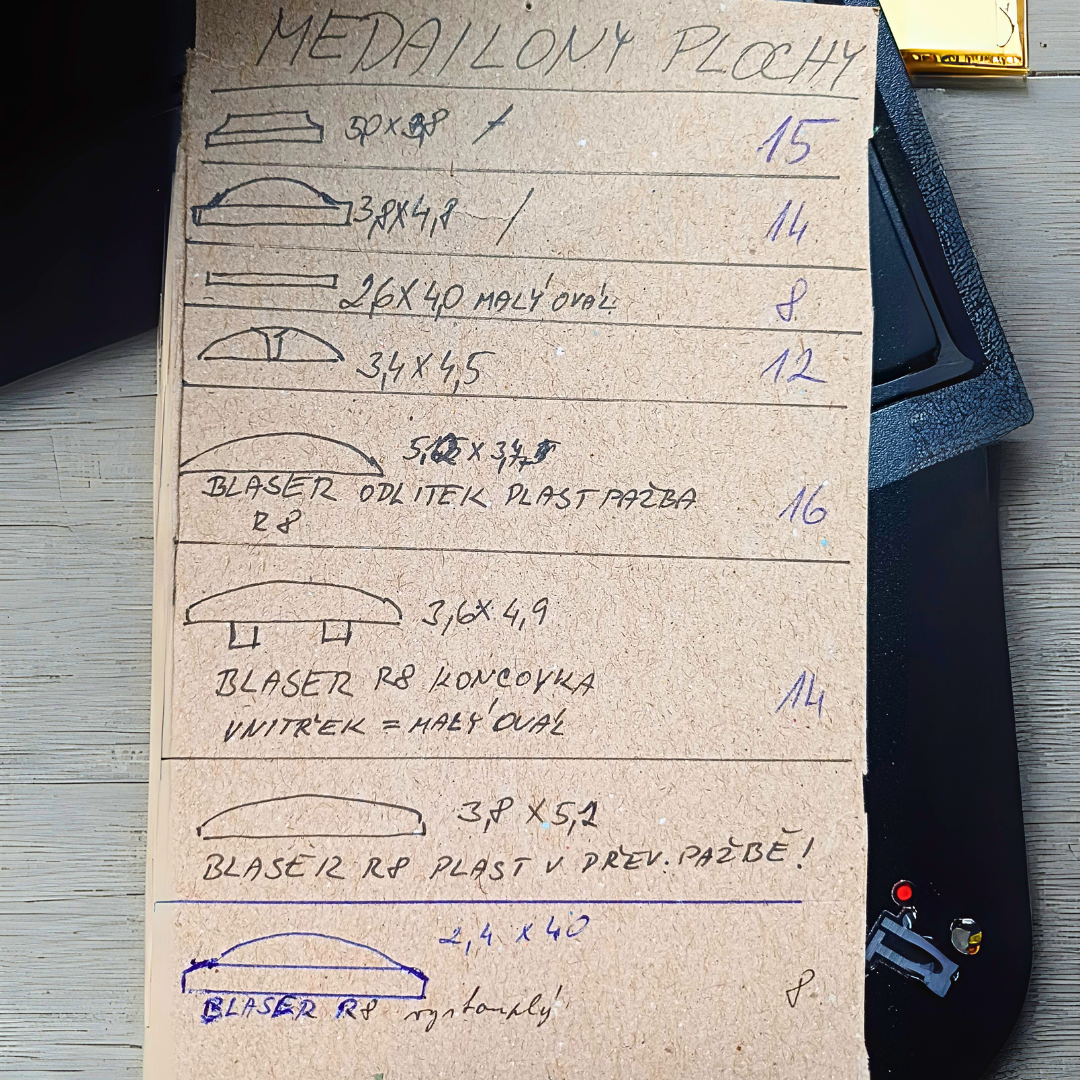 MEDAILONY PLOCHY
15
3,8X4,8 / 14
2,6X4,0 MALÝ OVÁL 8
3,4X4,5 12
BLASER ODLITEK PLAST PAŽBA 16
R8
3,6X4,9
BLASER R8 KONCOVKA 14
VNITŘEK = MALÝ OVÁL
3,8 X 5,2
BLASER R8 PLAST V DŘEV. PAŽBĚ!
2,4 X 40
BLASER R8 vystouplý 8